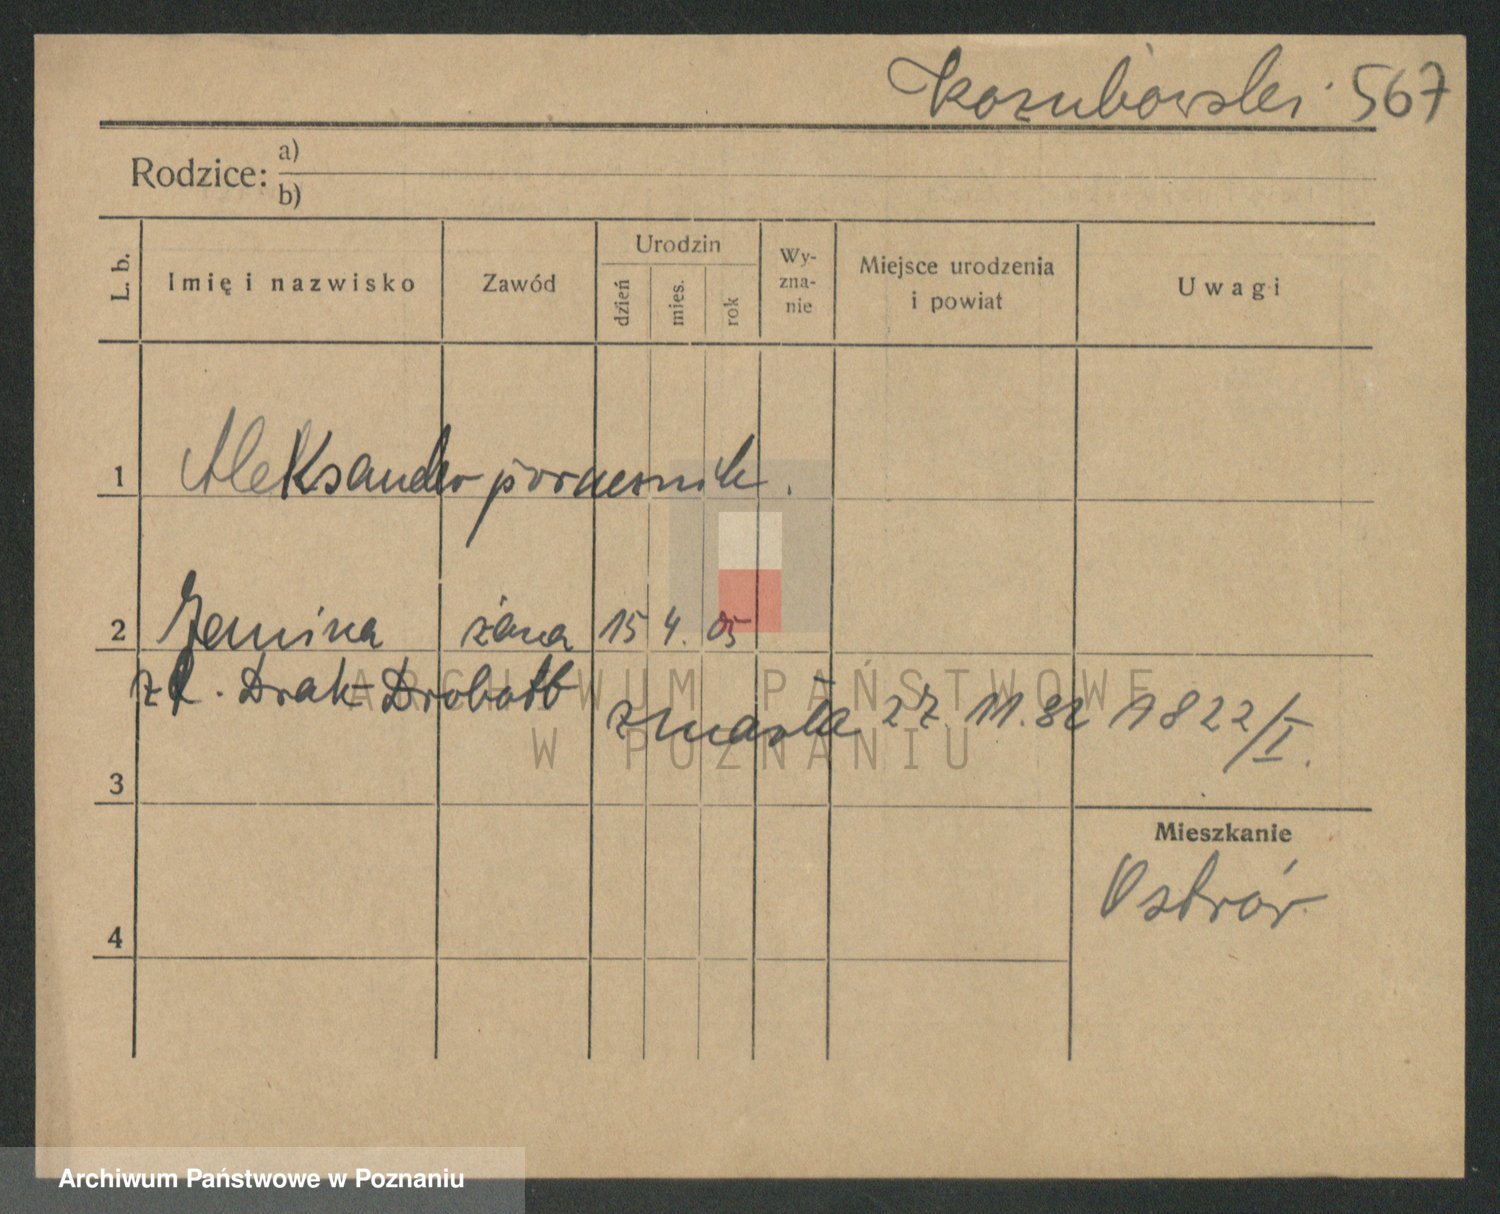 Kozubowski 567
Rodzice: a)
b)
L. b.
Imię i nazwisko
Zawód
Urodzin
dzień
mies.
rok
Wy-
zna-
nie
Miejsce urodzenia
i powiat
Uwagi
1 Aleksander porucznik.
2 Janina żona 15 4. 05
zd. Drak-Drobotb
zmarła 27. 11. 32 1822/I.
3
Mieszkanie
Ostrór
4
ARCHIWUM PAŃSTWOWE
W POZNANIU
Archiwum Państwowe w Poznaniu